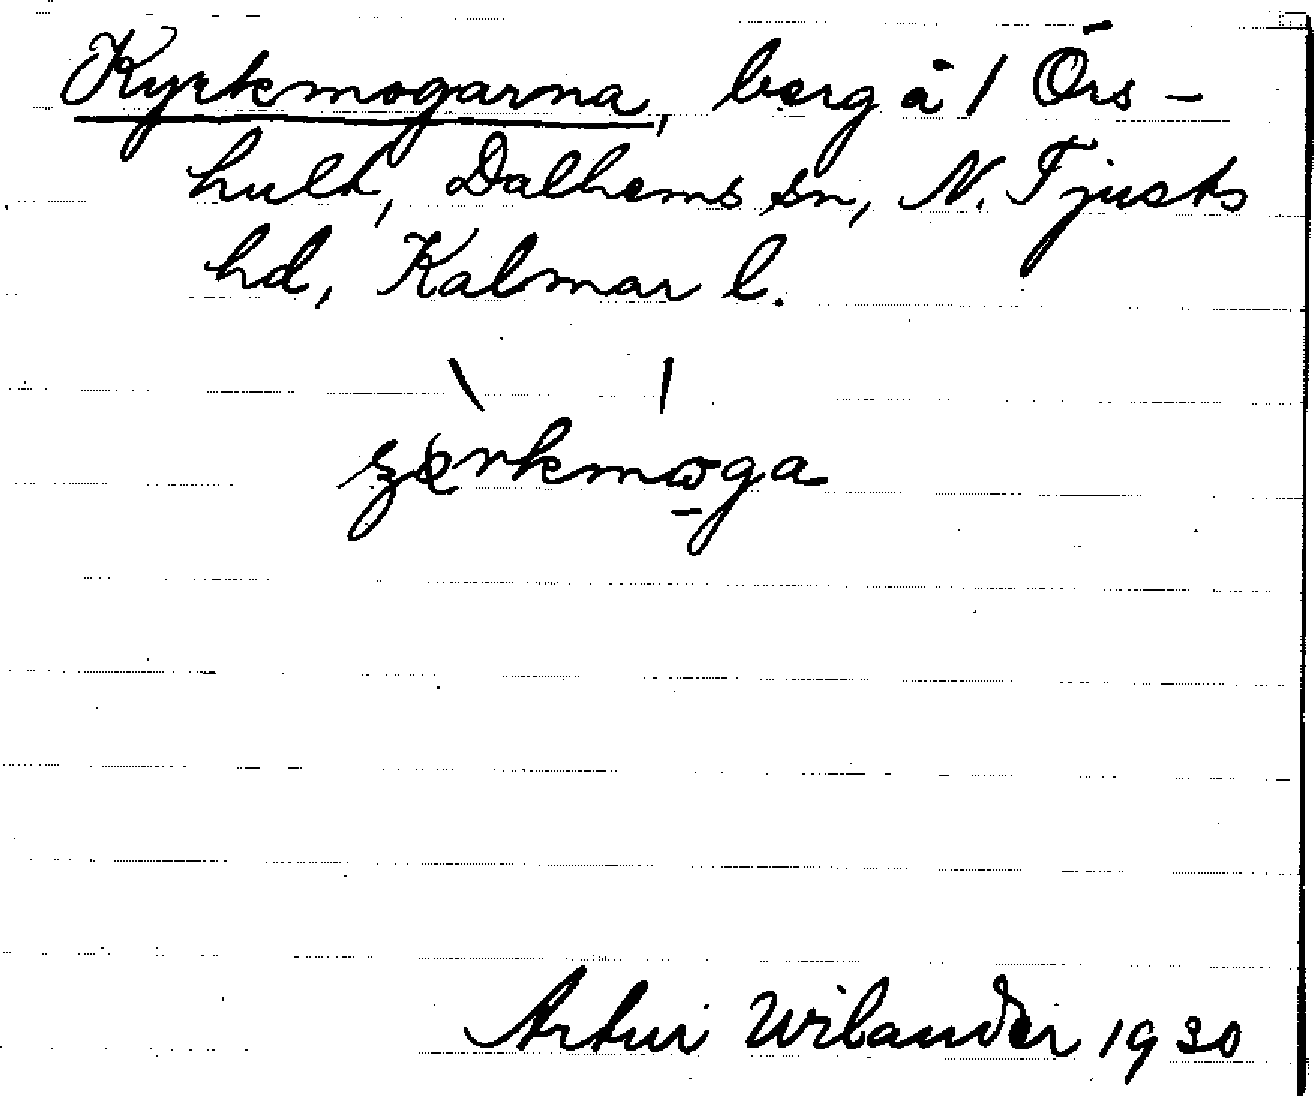 Kyrkmogarna, berg å 1 Örs-
hult, Dalhems sn, N. Tjusts
hd, Kalmar l.
Artur Wilander 1930